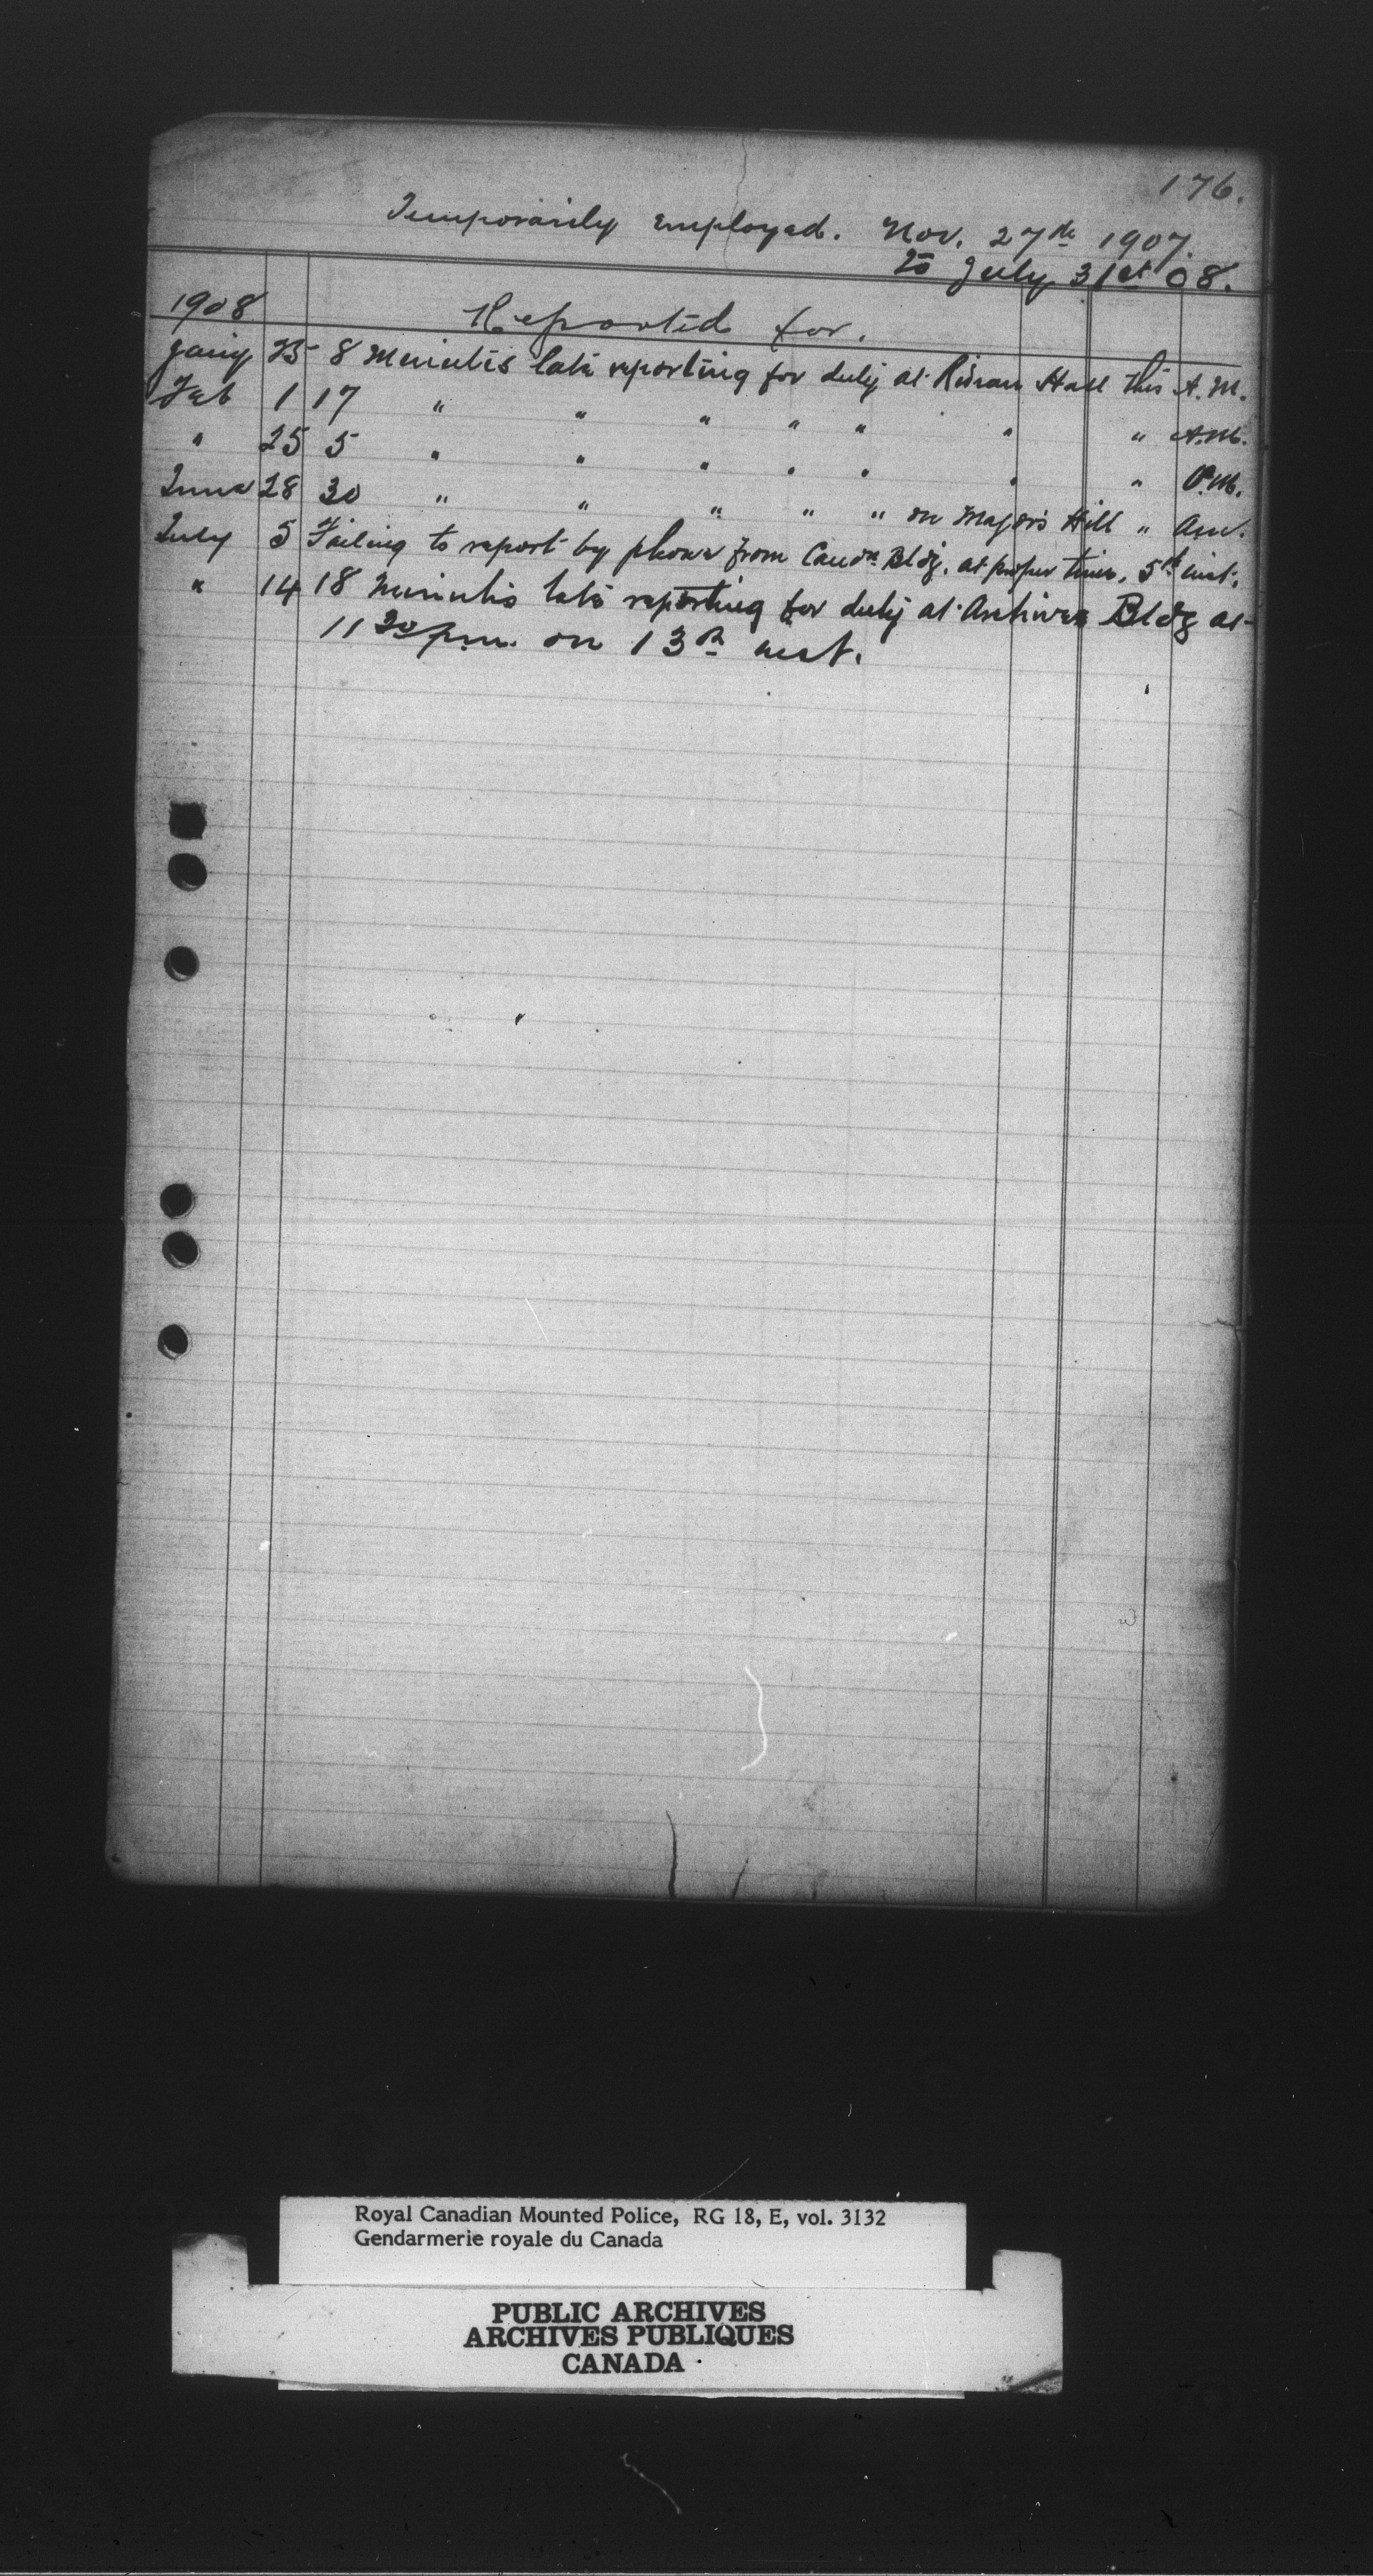 176.
Temporarily Employed. Nov. 27th 1907.
to July 31st 08.
1908
Reported for.
Jany 25 8 Minutes late reporting for duty at Rideau Hall this A.M.
Feb 1 17 " " " " " " " A.M.
" 25 5 " " " " " " " P.M.
June 28 30 " " " " " on Major's Hill " A.M.
July 5 Failing to report by phone from Candn Bldg. at proper time, 5th inst.
" 14 18 Minutes late reporting for duty at Archives Bldg at
11 30 p.m. on 13th inst.
Royal Canadian Mounted Police, RG 18, E, vol. 3132
Gendarmerie royale du Canada
PUBLIC ARCHIVES
ARCHIVES PUBLIQUES
CANADA